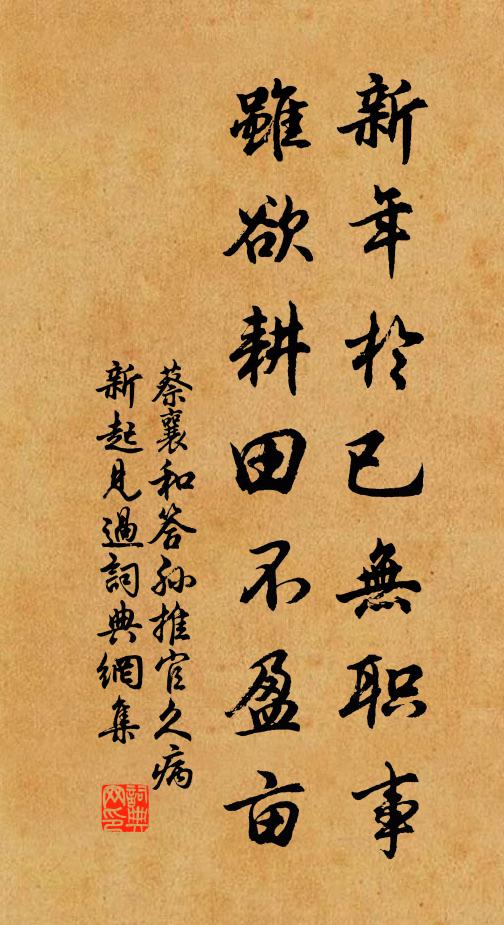 新年於已無职事
雖欲耕田不盈亩
蔡襄和答孙推官久病
新起見過詞典網集
詞典网印